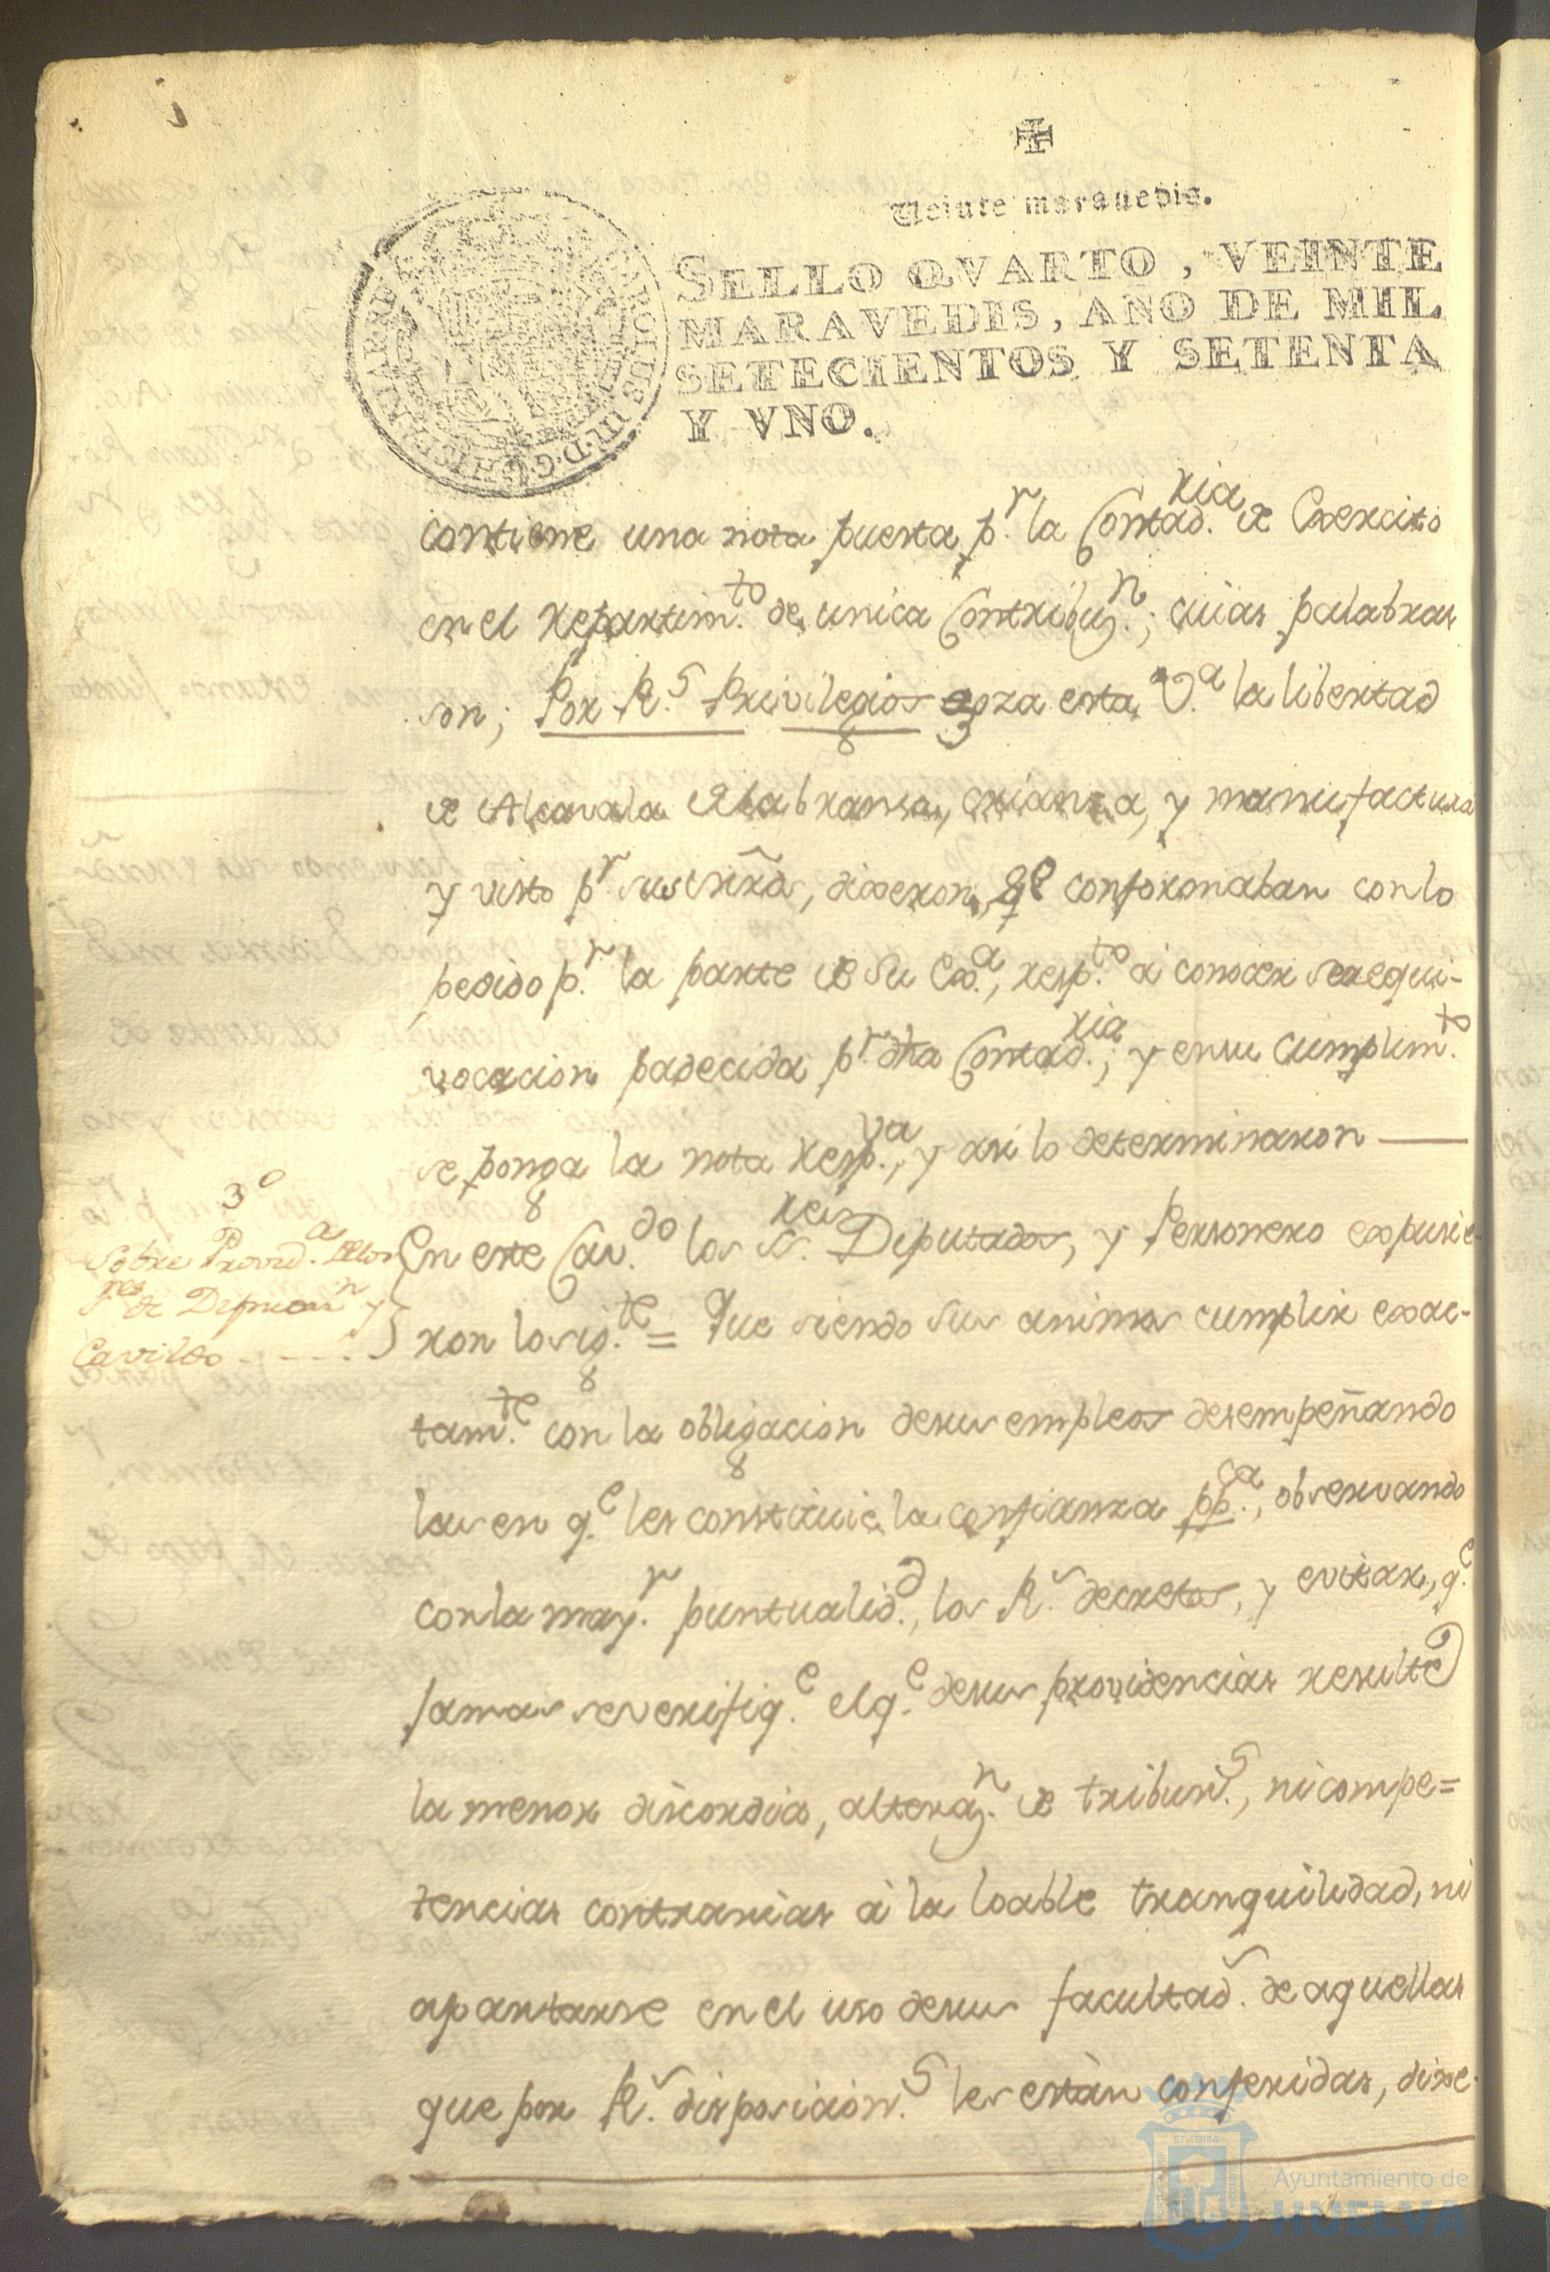 Veinte maravedis.
SELLO QVARTO, VEINTE
MARAVEDIS, AÑO DE MIL
SETECIENTOS Y SETENTA
Y VNO.
contiene una nota puesta p.r la Contad.ria de Exercito
en el Repartim.to de unica Contribuz.n; cuias palabras
son; Por R.s Privilegios goza esta V.a la libertad
de Alcavala de labranza, crianza, y manufactura
y visto p.r sus mrds, dixeron, q.e conformaban con lo
pedido p.r la parte de Su Ex.a, resp.to a conocer ser equi-
vocacion padecida p.r dha Contad.ria; y en su cumplim.to
se ponga la nota resp.va, y asi lo determinaron
3.o
Sobre Provid.a de los
res de Diputaz.n y
Cavildo
En este Cav.do los S.res Diputados, y Personero expusie-
ron lo sig.te = Que siendo sus animos cumplir exac-
tam.te con la obligacion de sus empleos desempeñando
las en q.e les constituie la confianza pp.ca, observando
con la may.r puntualid.d, los R.s decretos, y evitar, q.e
jamas se verifiq.e el q.e de sus providencias resulte
la menor discordia, alteraz.n de tribun.s, ni compe=
tencias contrarias à la loable tranquilidad, ni
apartarse en el uso de sus facultad.s de aquellas
que por R.s disposicion.s les están conferidas, dixe-
Ayuntamiento de
HUELVA